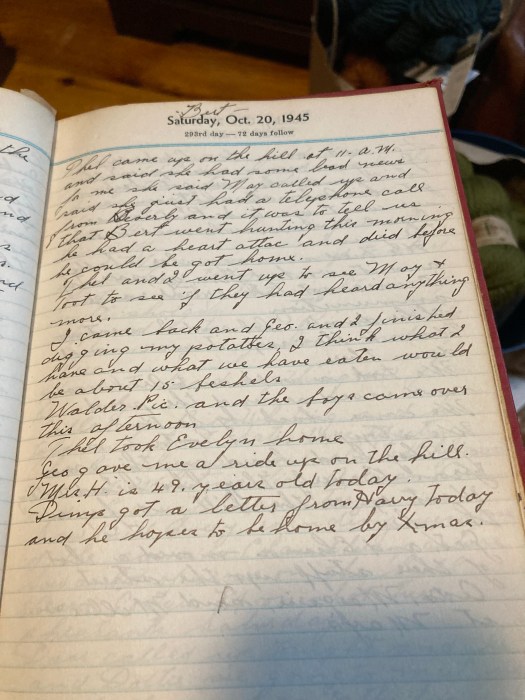 the
nd
s
s.
rd
- Bert -
Saturday, Oct. 20, 1945
293rd day — 72 days follow
Phel came up on the hill at 11. a.m.
and said she had some bad news
to me she said May called up and
said she giust had a telyphone call
from Beverly and it was to tell us
that Bert went hunting this morning
he had a heart attac and died before
he could be got home.
Phel and I went up to see May &
Toot to see if they had heard anything
more.
I came back and Geo. and I finished
digging my potattoes, I think what I
have and what we have eaten would
be about 15 beshels
Walder. Pic. and the boys came over
this afternoon
Phel took Evelyn home
Geo gave me a ride up on the hill.
Mrs. H. is 49. years old today.
Dump got a letter from Harry today
and he hopes to be home by Xmas.